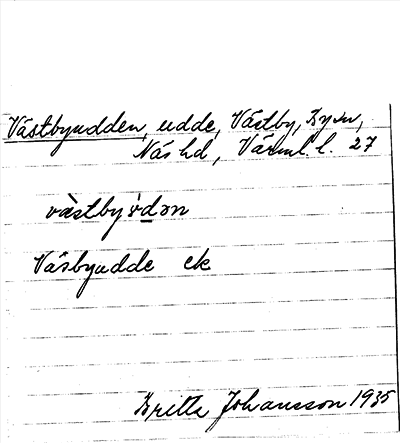 Västbyudden, udde, Västby, By sn,
Näs hd, Värml. l. 27
västbyùdən
Väsbyudde ek
Britta Johansson 1935